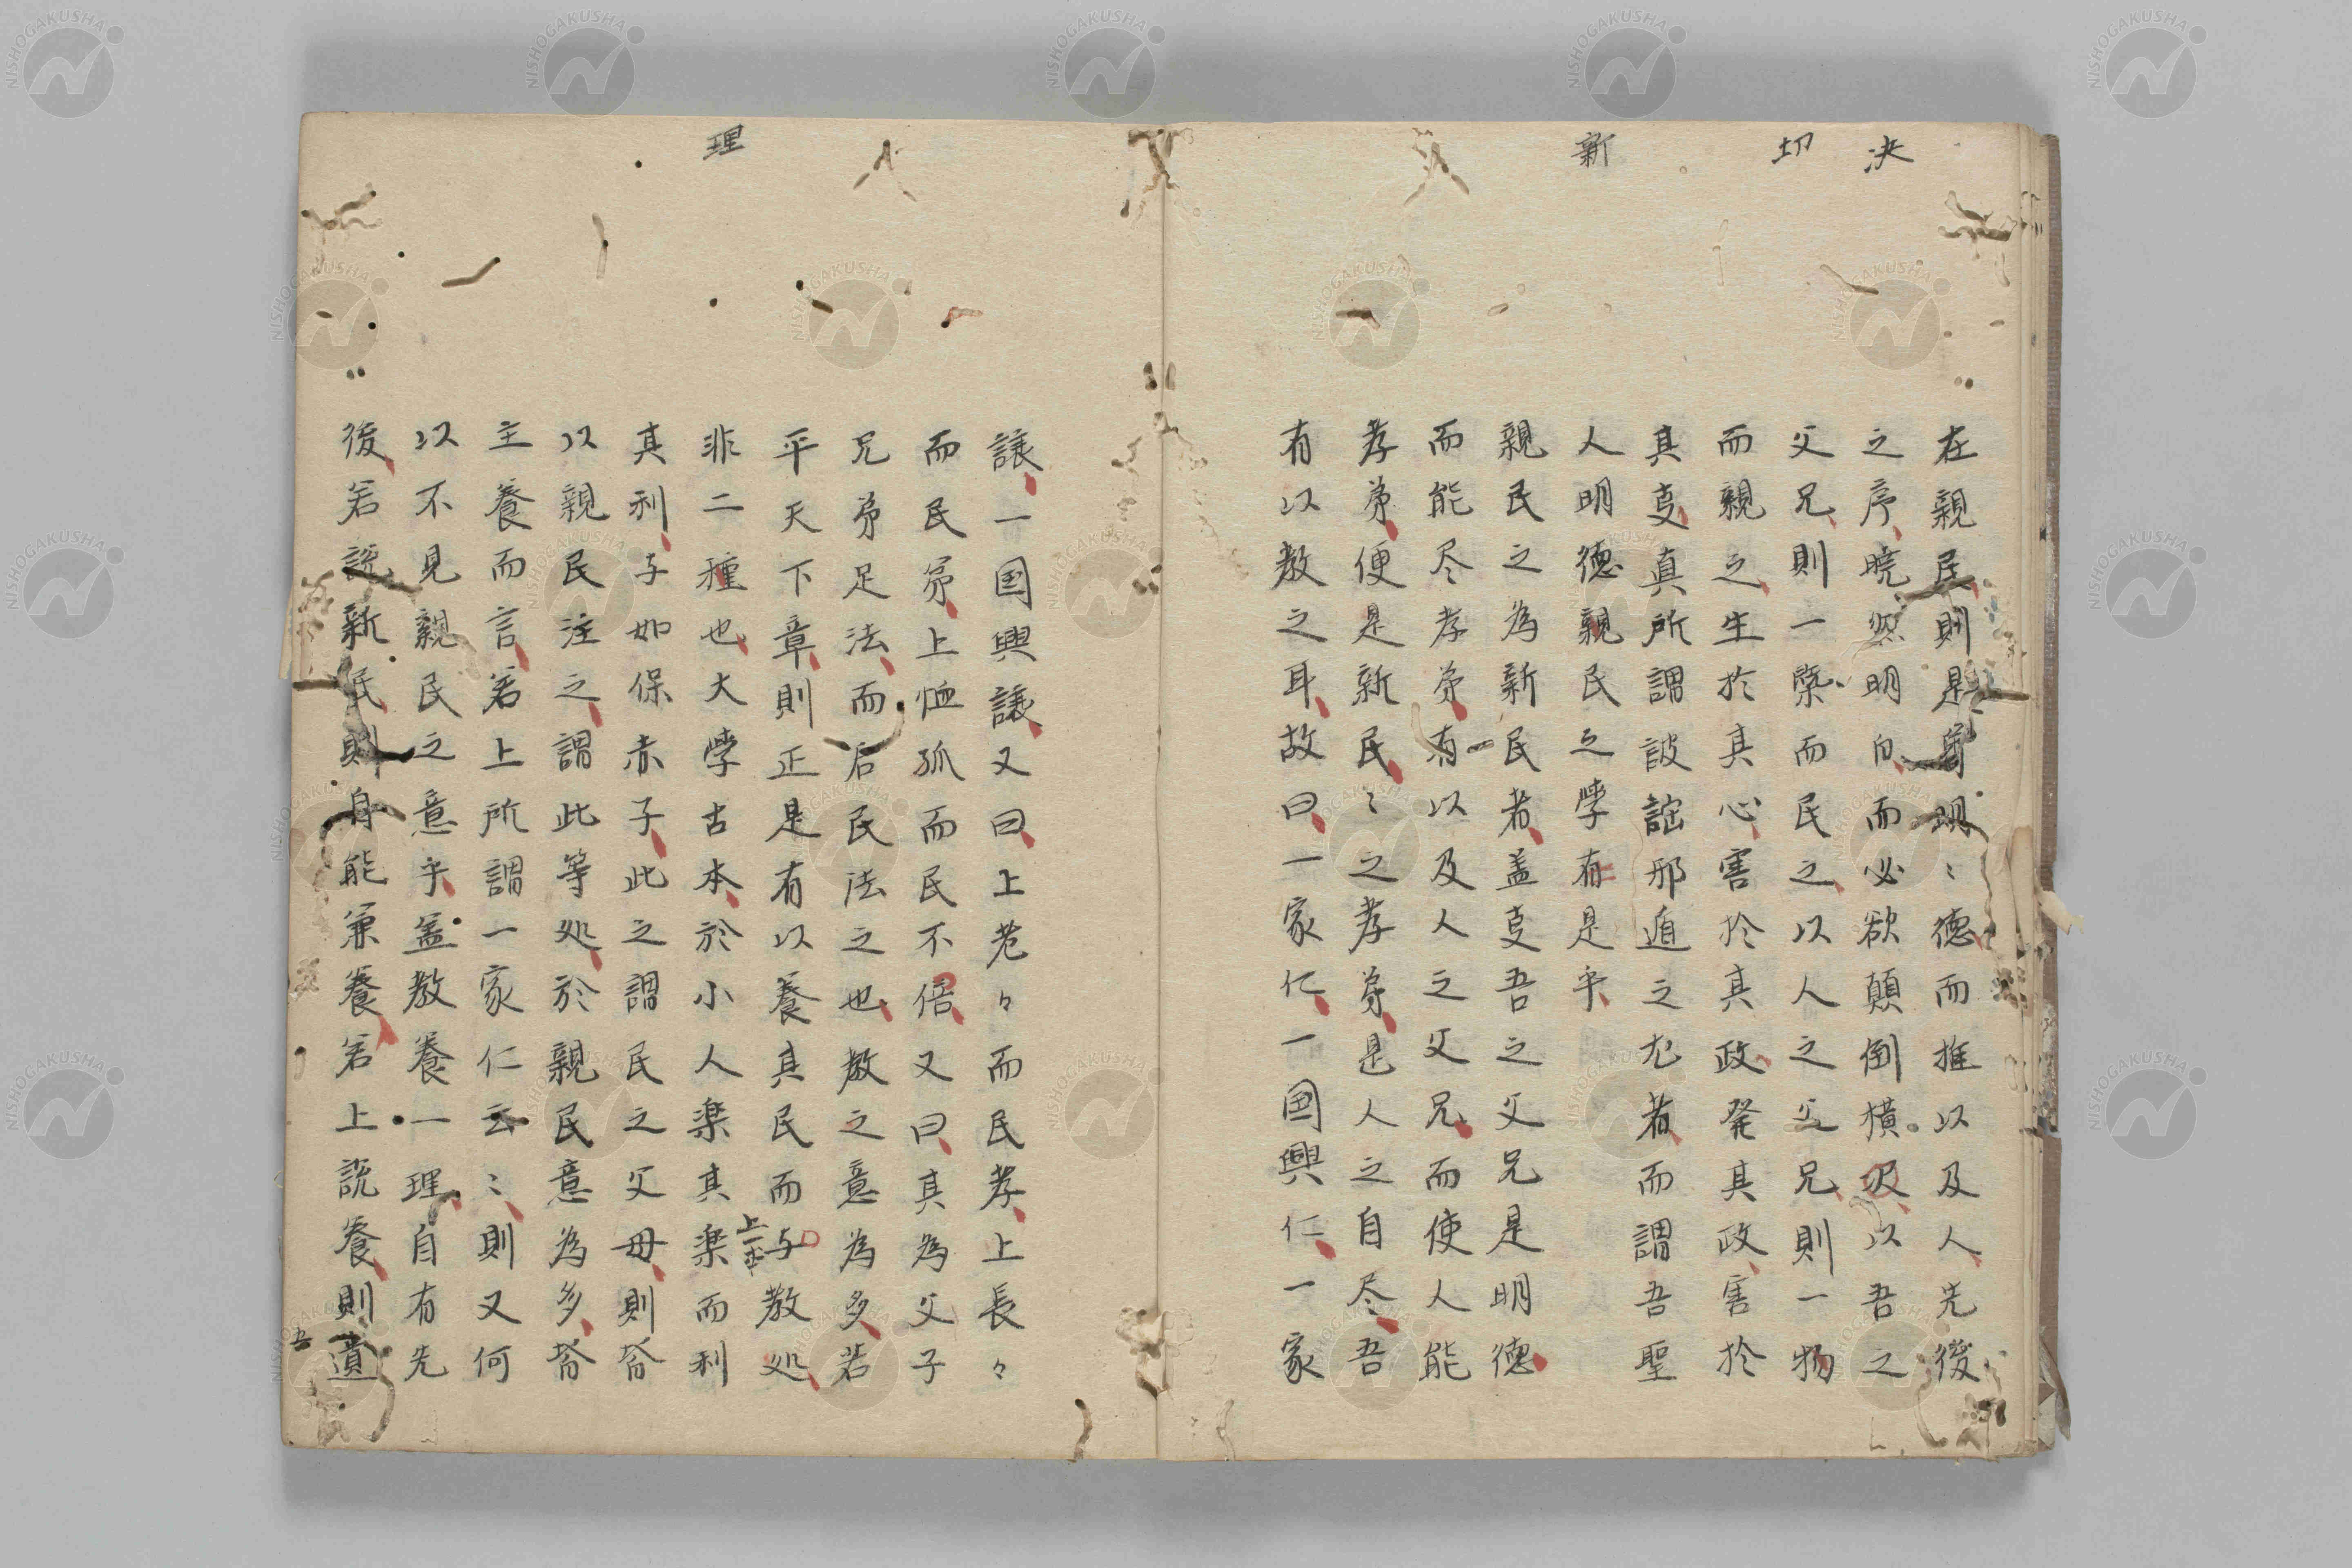 決
切
新
在親民則是身明〻德而推以及人先後
之序曉然明白而必欲顛倒橫決以吾之
父兄則一槩而民之以人之父兄則一物
而親之生於其心害於其政発其政害於
其㕝真所謂詖諠邪遁之尤者而謂吾聖
人明德親民之學有是乎
親民之為新民者盖㕝吾之父兄是明德
而能尽孝弟有以及人之父兄而使人能
孝弟便是新民〻之孝弟是人之自尽吾
有以教之耳故曰一家仁一國興仁一家
理
讓一国興讓又曰上老々而民孝上長々
而民弟上恤孤而民不倍又曰其為父子
兄弟足法而后民法之也教之意為多若
平天下章則正是有以養其民而与教処
上一本
非二種也大學古本於小人楽其楽而利
其利子如保赤子此之謂民之父母則皆
以親民注之謂此等処於親民意為多皆
主養而言若上所謂一家仁云〻則又何
以不見親民之意乎盖教養一理自有先
後若說新民則身能兼養若上說養則遺